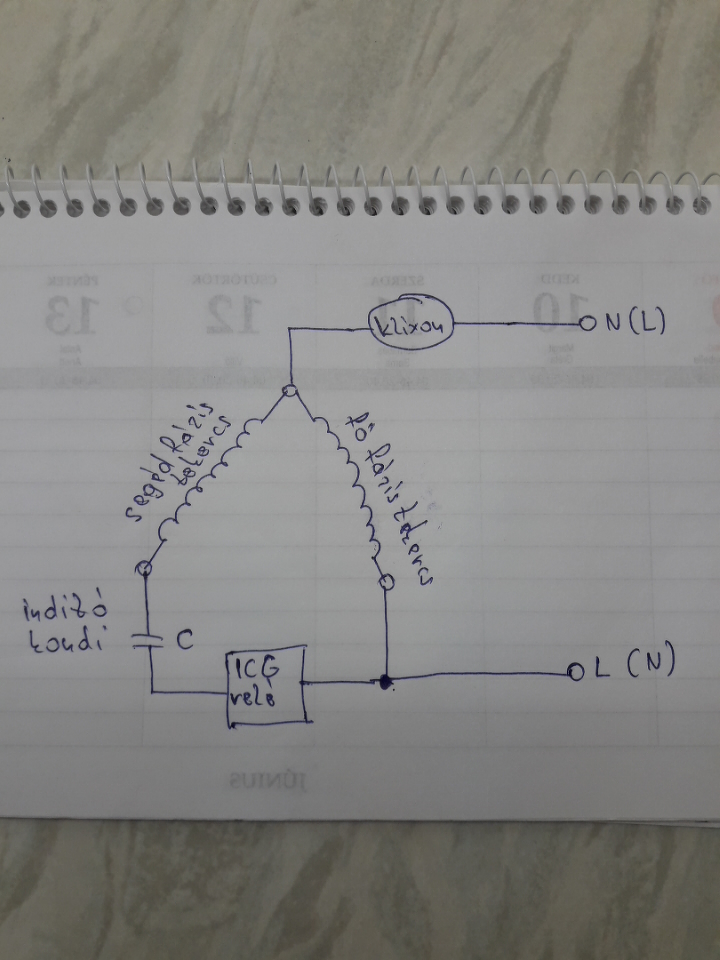 klixon
N(L)
segéd fázis
tekercs
fő fázis tekercs
indító
kondi
C
ICG
relé
L (N)
PÉNTEK
13
CSÜTÖRTÖK
12
SZERDA
11
KEDD
10
JÚNIUS